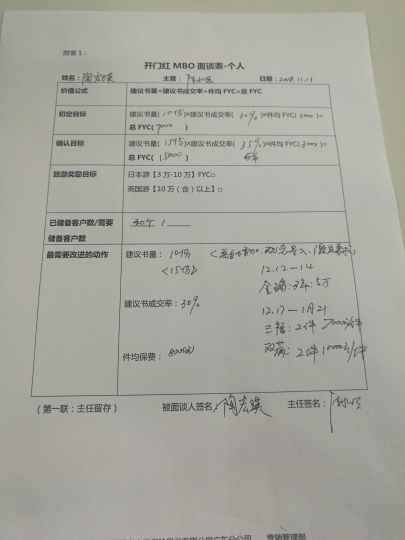 附表1:
开门红 MBO 面谈表-个人
姓名: 陶宏瑛 主管: 日期: 2018.11.13
价值公式 建议书量×建议书成交率×件均FYC=总FYC
初定目标 建议书量(10份)×建议书成交率(30%)×件均FYC(3000)=
总FYC(9000)
确认目标 建议书量(15份)×建议书成交率(35%)×件均FYC(3000)=
总FYC(15000) 5件
旅游奖励目标 日本游【3万-10万】FYC□
英国游【10万(含)以上】□
已储备客户数/需要 30个 /
储备客户数
最需要改进的动作 建议书量: 10份
<15份> 12.12—14
金瑞: 3年: 5万
建议书成交率: 30% 12.17—1月21
三福: 2件 20000/件
件均保费: 8000元 双满: 2件 10000元/件
(第一联:主任留存) 被面谈人签名: 陶宏瑛 主任签名:
股份有限公司广东分公司 营销管理部